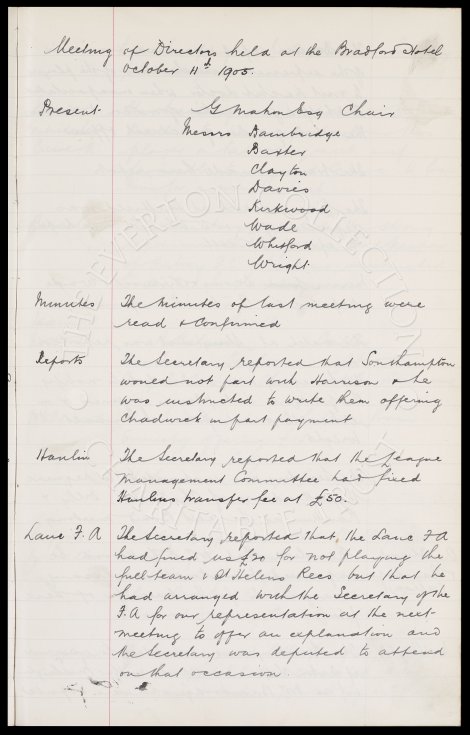 Meeting of Directors held at the Bradford Hotel
October 11th 1905.
Present G Mahon Esq Chair
Messrs Bainbridge
Baxter
Clayton
Davies
Kirkwood
Wade
Whitford
Wright.
Minutes The Minutes of last meeting were
read & Confirmed
Reports The Secretary reported that Southampton
would not part with Harrison & he
was instructed to write them offering
Chadwick in part payment
Hanlin The Secretary reported that the League
Management Committee had fixed
Hanlins transfer fee at £50.
Lanc F.A The Secretary reported that, the Lanc F A
had fined us £20 for not playing the
full team v St Helens Recs but that he
had arranged with the Secretary of the
F.A for our representation at the next
meeting to offer an explanation and
the Secretary was deputed to attend
on that occasion.
THE EVERTON COLLECTION
CHARITABLE TRUST